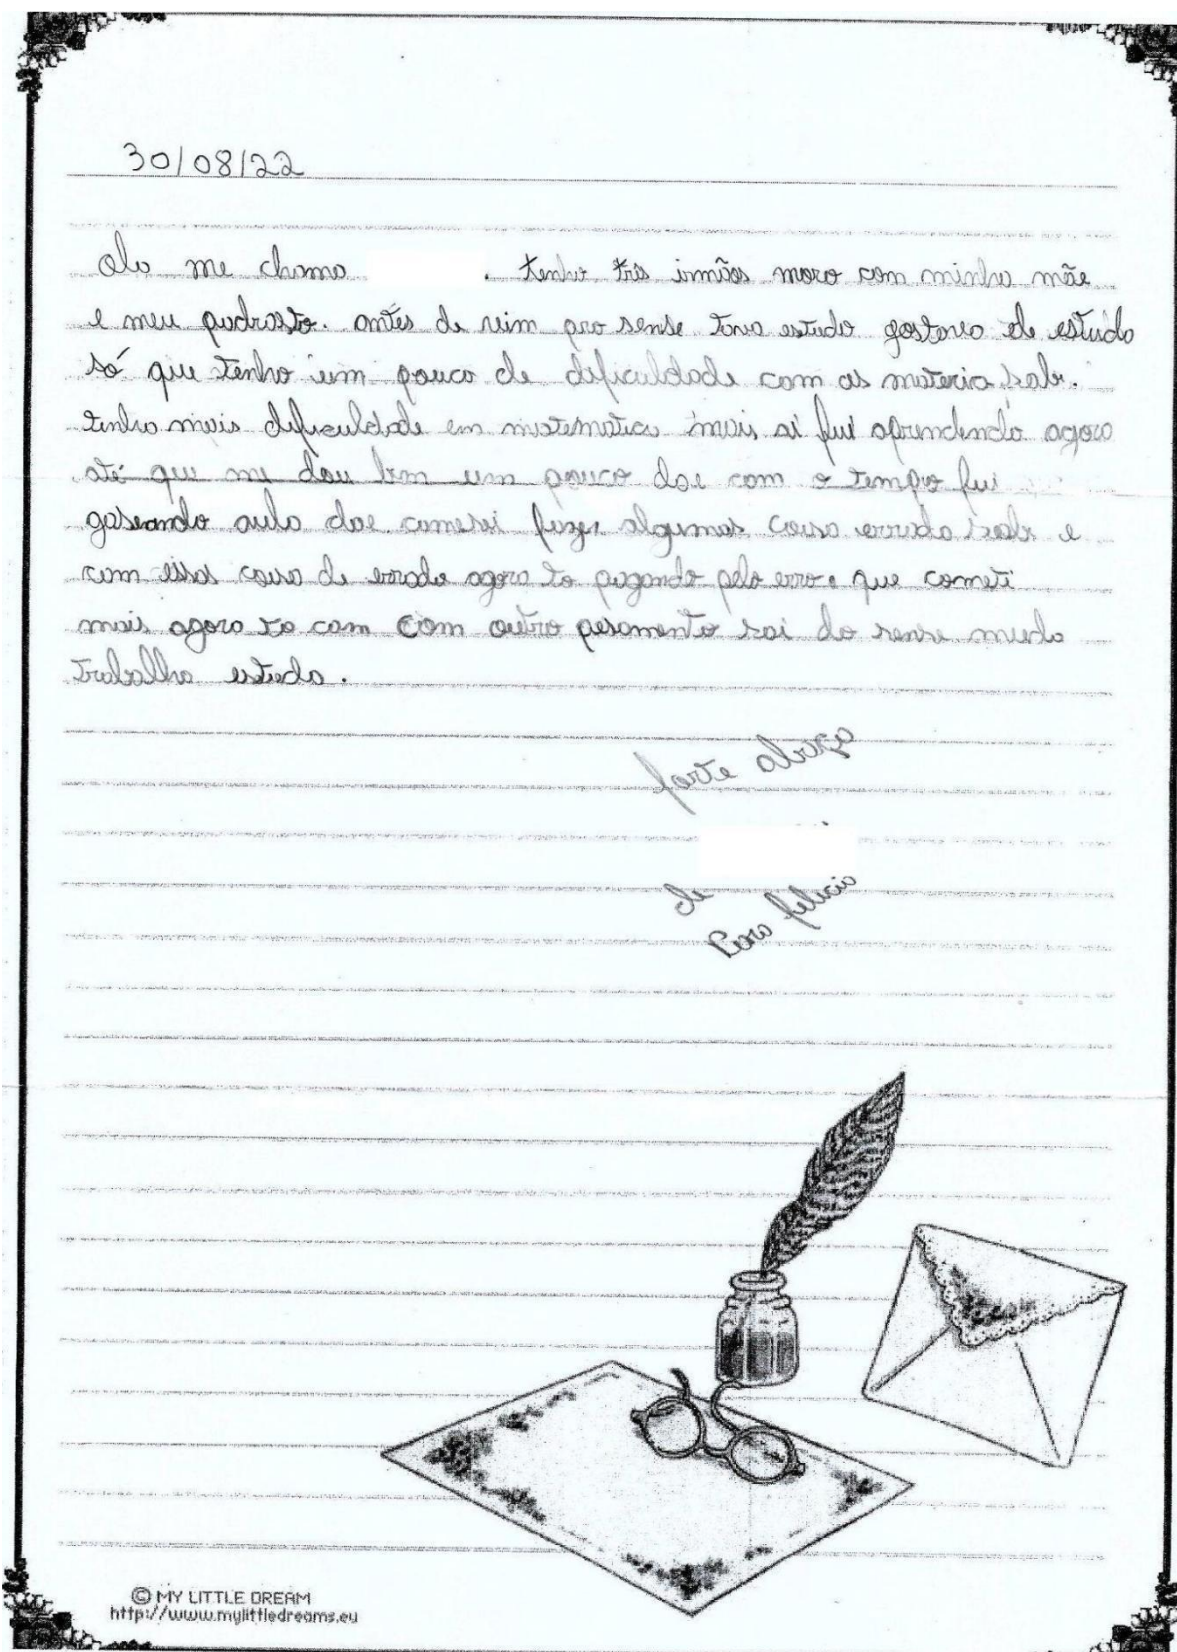 30/08/22
Olo me chamo . tenho três irmãos moro com minha mãe
e meu padrasto. antes de vim pro sense tava estudo gostava de estudo
só que tenho um pouco de dificuldade com as materia sab.
tenho mais dificuldade em matematica mais ai fui aprendendo agora
até que me dou bem um pouco dae com o tempo fui
gaseando aula dae comesei fazer algumas coisa errada sab e
com essas coisa de errado agora to pagando pelo erro. que cometi
mais agora to com com outro pesamento sai do sense muda
trabalha estuda.
forte abraço
de
Para felicio
© MY LITTLE DREAM
http://www.mylittledreams.eu